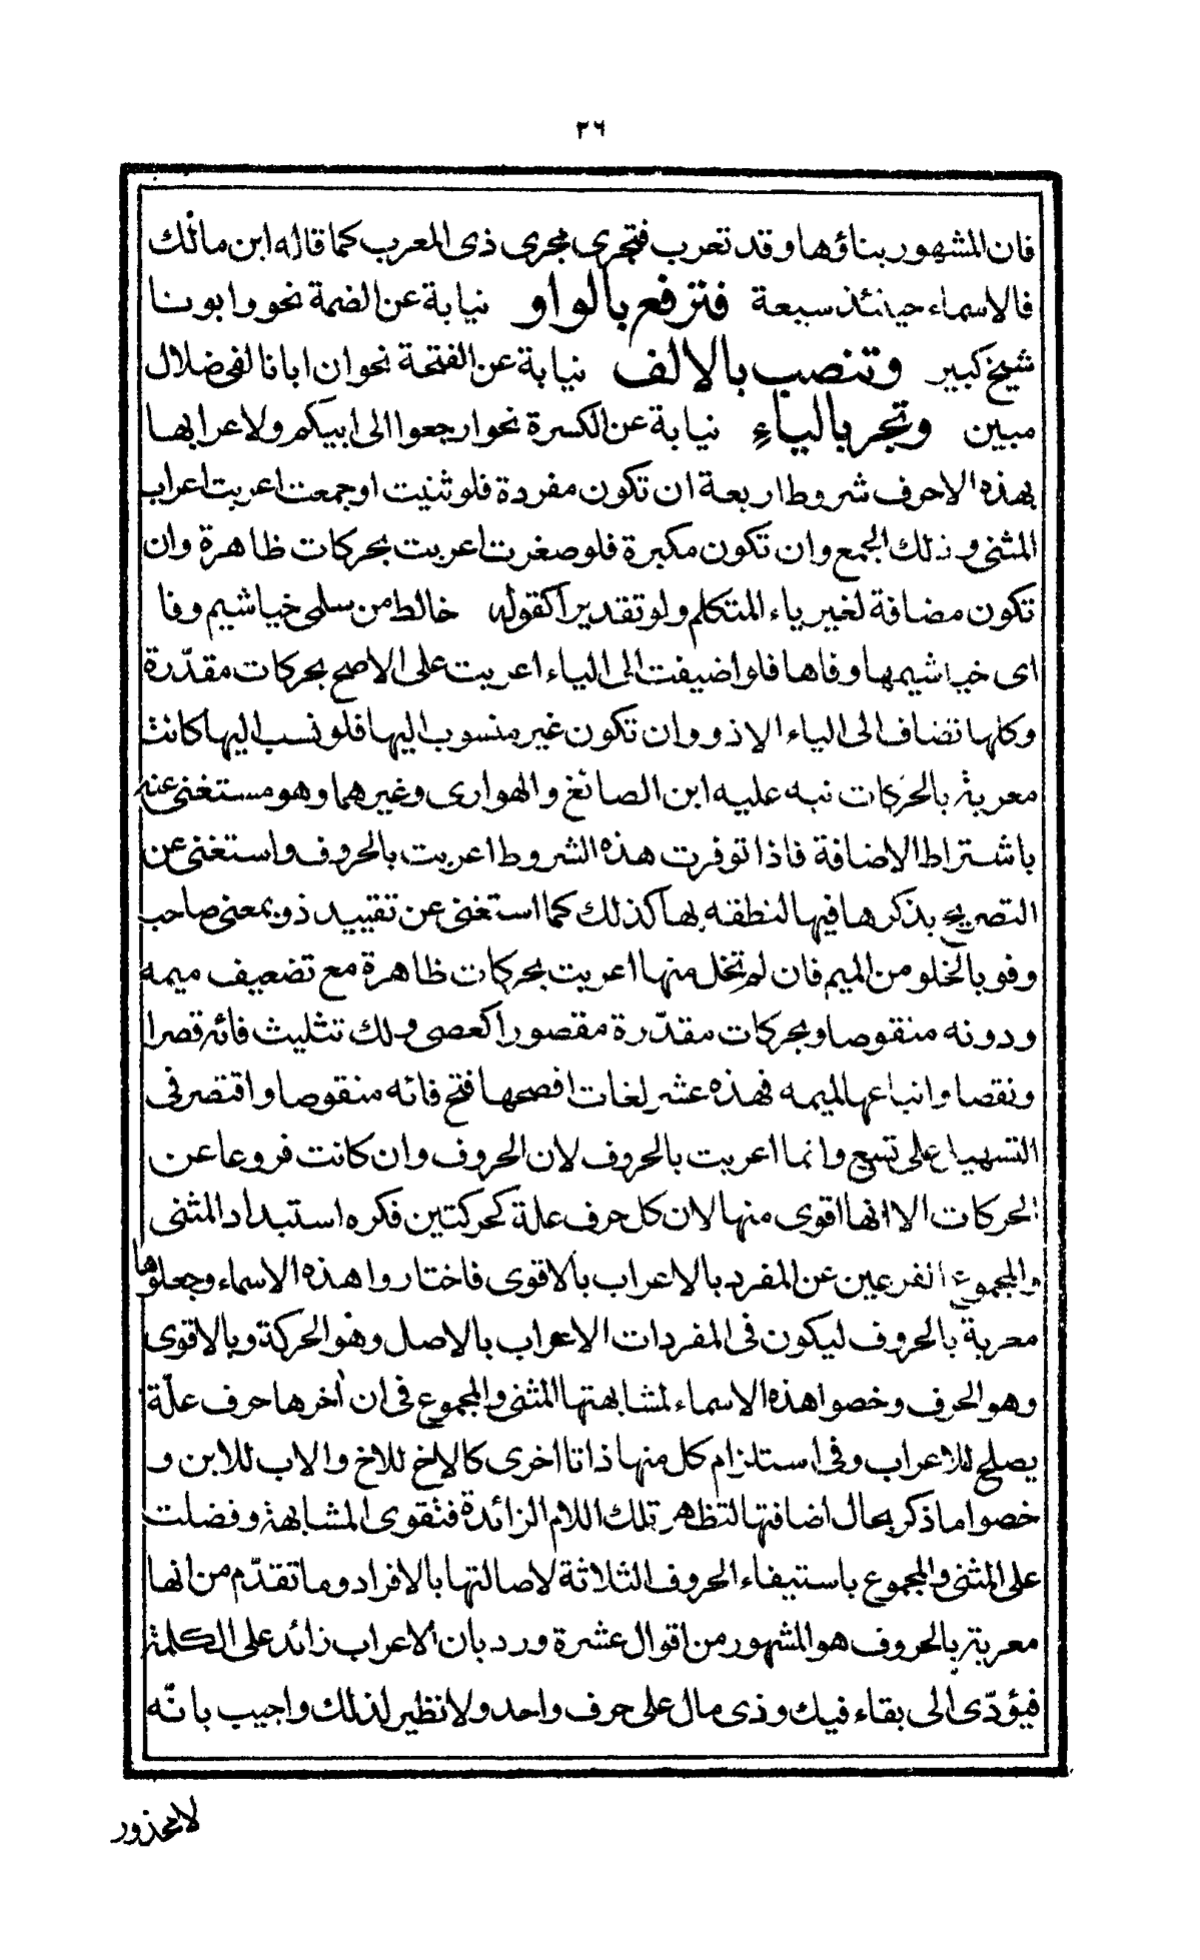 ٢٦
فان المشهور بناؤها وقد تعرب فتجرى مجرى ذى المعرب كما قاله ابن مالك
فالاسماء حينئذ سبعة فترفع بالواو نيابة عن الضمة نحو وابونا
شيخ كبير وتنصب بالالف نيابة عن الفتحة نحو ان ابانا لفى ضلال
مبين وتجر بالياءِ نيابة عن الكسرة نحو ارجعوا الى ابيكم ولاعرابها
بهذه الاحرف شروط اربعة ان تكون مفردة فلو ثنيت او جمعت اعربت اعراب
المثنى وذلك الجمع وان تكون مكبرة فلو صغرت اعربت بحركات ظاهرة وان
تكون مضافة لغير ياء المتكلم ولو تقديرا كقوله خالط من سلمى خياشيم وفا
اى خياشيمها وفاها فلو اضيفت الى الياء اعربت على الاصح بحركات مقدّرة
وكلها تضاف الى الياء الا ذو وان تكون غير منسوب اليها فلو نسب اليها كانت
معربة بالحركات نبه عليه ابن الصائغ والهوارى وغيرهما وهو مستغنى عنه
باشتراط الاضافة فاذا توفرت هذه الشروط اعربت بالحروف واستغنى عن
التصريح بذكرها فيها لنطقه بها كذلك كما استغنى عن تقييد ذو بمعنى صاحب
وفو بالخلو من الميم فان لم تخل منها اعربت بحركات ظاهرة مع تضعيف ميمه
ودونه منقوصا وبحركات مقدّرة مقصورا كعصى ولك تثليث فائه قصرا
ونقصا واتباعها لميمه فهذه عشر لغات افصحها فتح فائه منقوصا واقتصر فى
التسهيل على تسع وانما اعربت بالحروف لان الحروف وان كانت فروعا عن
الحركات الا انها اقوى منها لان كل حرف علة كحركتين فكره استبداد المثنى
والمجموع الفرعيين عن المفرد بالاعراب بالاقوى فاختاروا هذه الاسماء وجعلوها
معربة بالحروف ليكون فى المفردات الاعراب بالاصل وهو الحركة وبالاقوى
وهو الحرف وخصوا هذه الاسماء لمشابهتها المثنى والمجموع فى ان أخرها حرف علّة
يصلح للاعراب وفى استلزام كل منها ذاتا اخرى كالاخ للاخ والاب للابن و
خصوا ما ذكر بحال اضافتها لتظهر تلك اللام الزائدة فتقوى المشابهة وفضلت
على المثنى والمجموع باستيفاء الحروف الثلاثة لاصالتها بالافراد وما تقدّم من انها
معربة بالحروف هو المشهور من اقوال عشرة ورد بان الاعراب زائد على الكلمة
فيؤدّى الى بقاء فيك وذى مال على حرف واحد ولا نظير لذلك واجيب بانّه
لا محذور